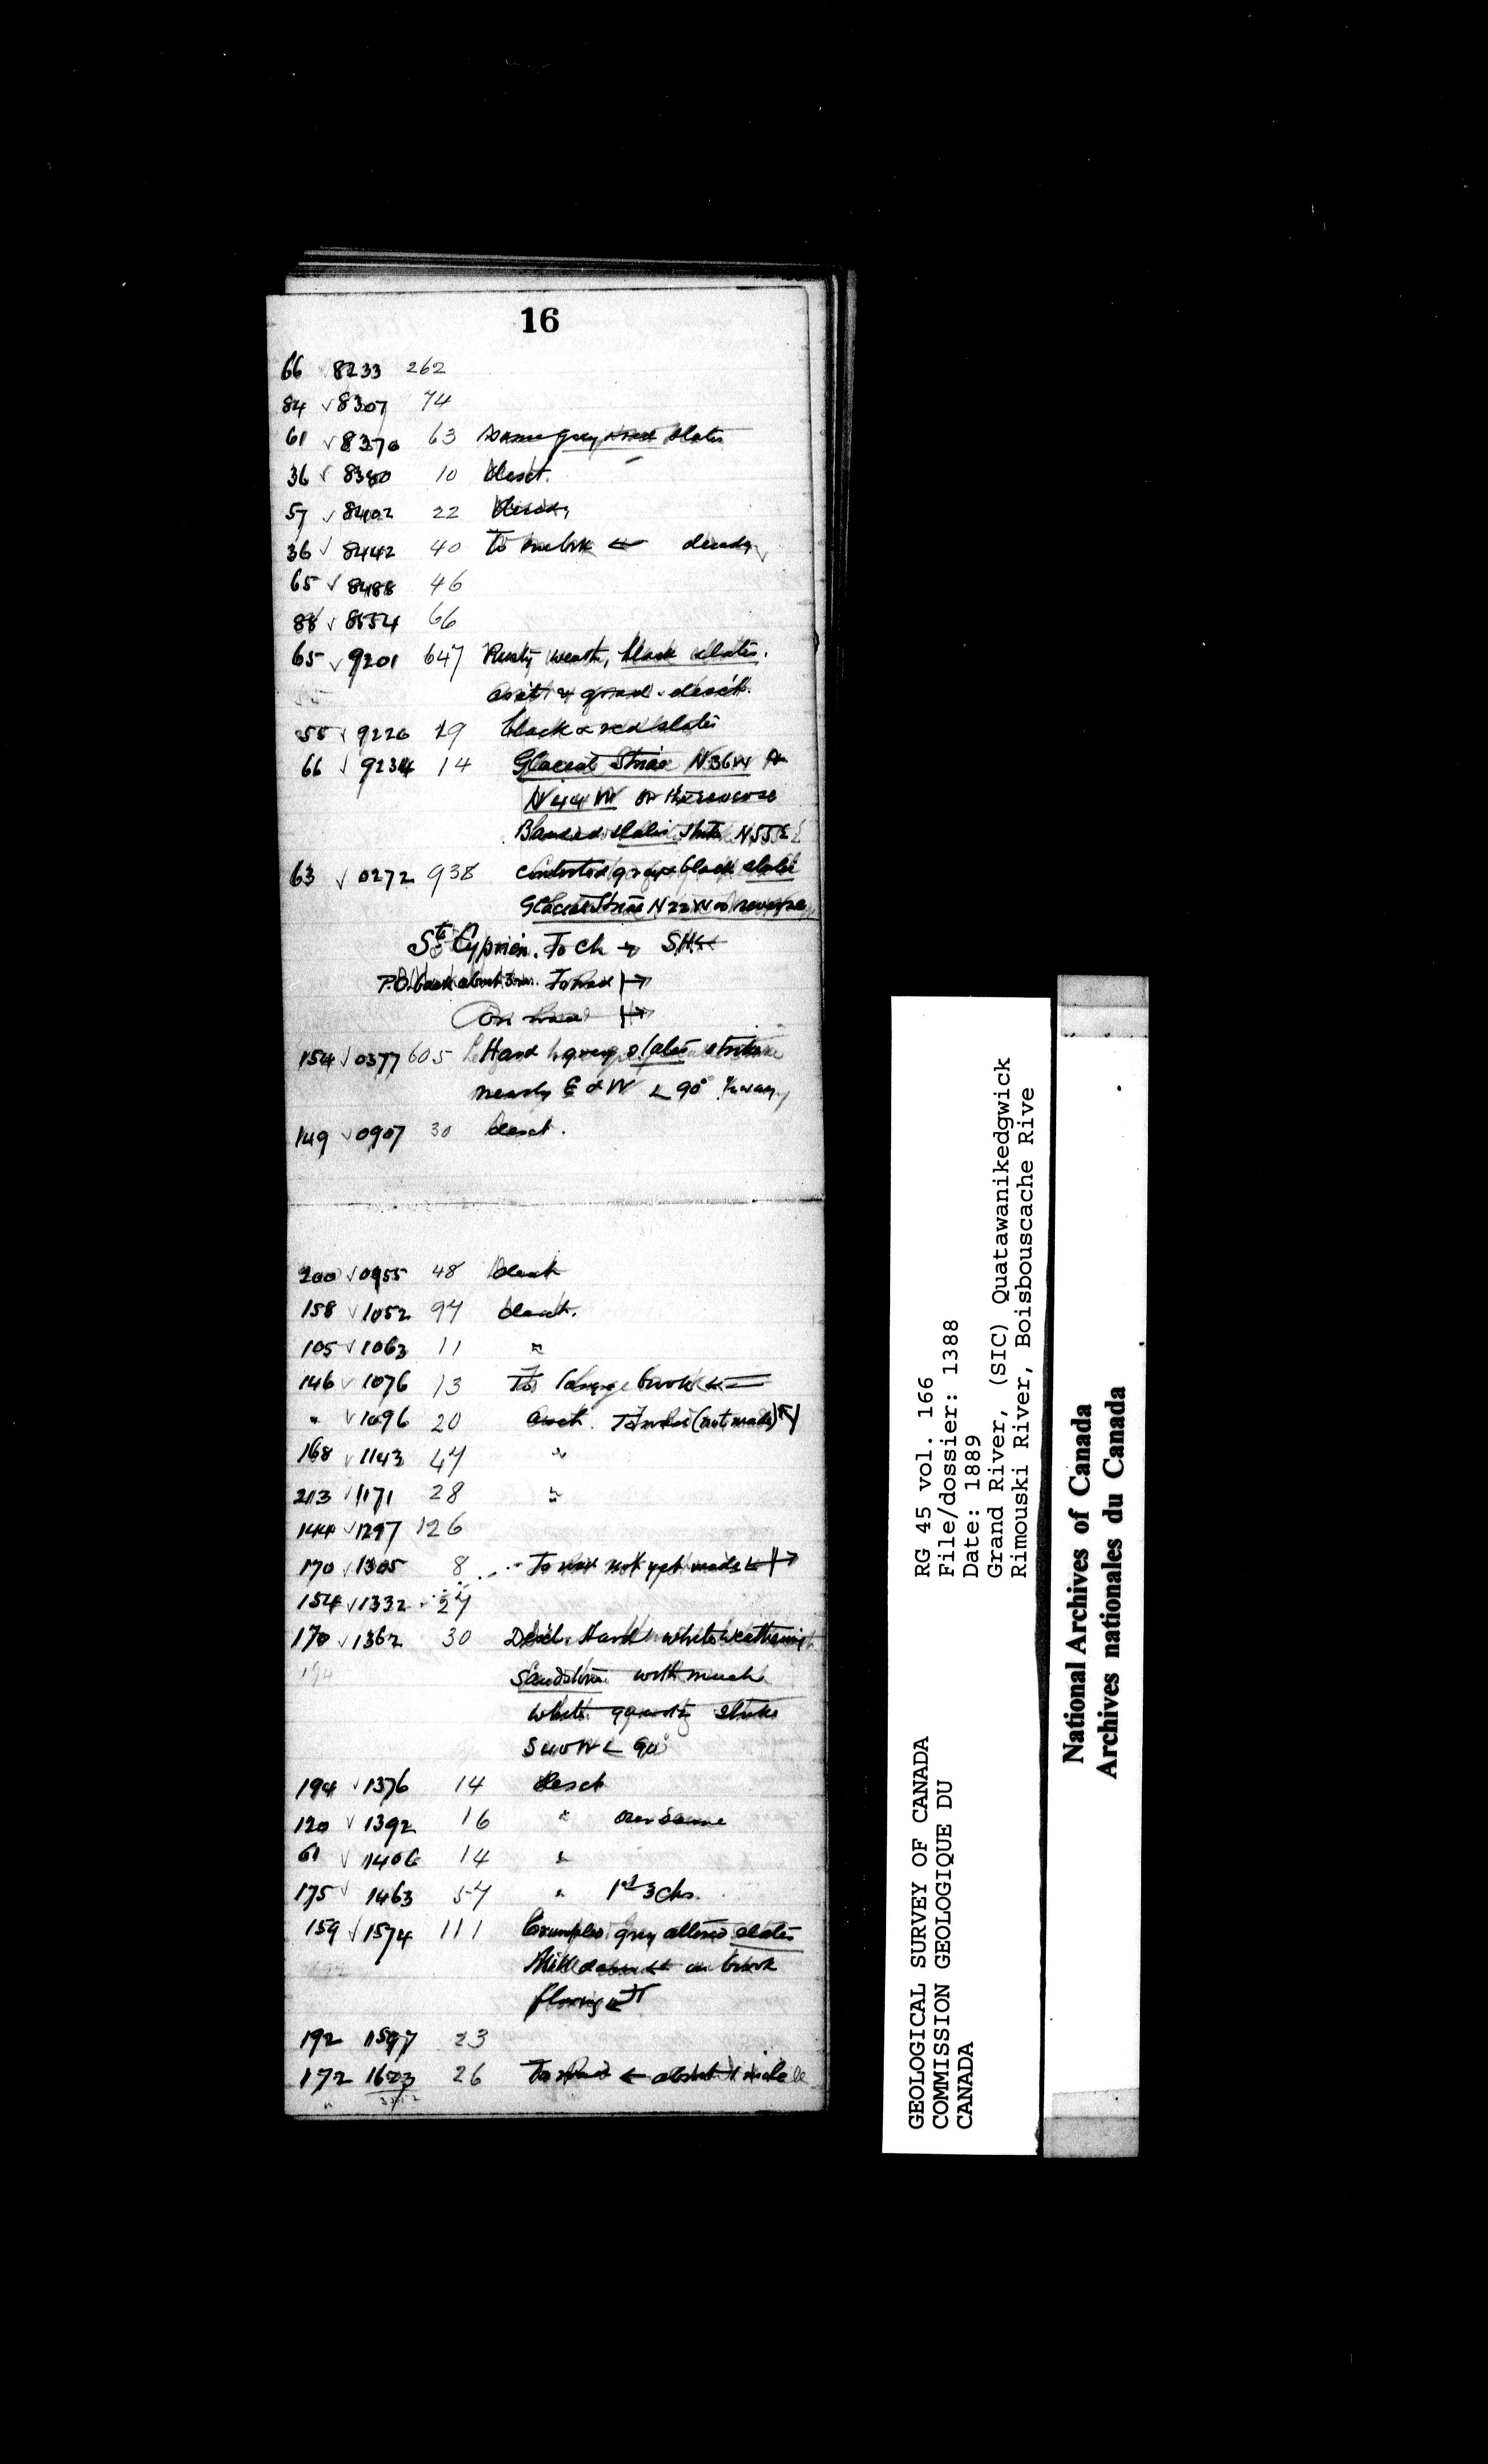 16
66 8233 262
84 √ 8307 74
61 √ 8370 63 Same grey slates
36 √ 8380 10 desct.
57 √ 8402 22
36 √ 8442 40 To
65 √ 8488 46
88 √ 8554 66
65 √ 9201 647 Rusty weath, black slates.
55 √ 9220 19 black & red slates
66 √ 9234 14 Glacial Striae N36W &
N44W or the reverse
Banded slates strike N55E
63 √ 0272 938 contorted grey & black slates
Glacial Striae N22W or reverse
St Cyprien. To Ch → SH
P.O. back about 3 . To Road |→
On road |→
154 √ 0377 605 Hard grey slates strike
nearly E & W < 90°
149 √ 0907 30 desct.
200 √ 0955 48 desct
158 √ 1052 97 desct.
105 √ 1063 11 "
146 √ 1076 13 To large brook ←
" √ 1096 20 To road (not made)
168 √ 1143 47 "
213 √ 1171 28 "
144 √ 1297 126
170 √ 1305 8 To road not yet made ←|→
154 √ 1332 27
170 √ 1362 30 Desct. Hard white weathering
194
Sandstone with much
white quartz strike
S40W < 90°
194 √ 1376 14 desct
120 √ 1392 16 " over same
61 √ 1406 14 "
175 √ 1463 57 " 1st 3 chs.
159 √ 1574 111 Crumpled grey altered slates
Mill on brook
flowing
192 1597 23
172 1623 26 To Road ← about 1 mile
GEOLOGICAL SURVEY OF CANADA
COMMISSION GEOLOGIQUE DU
CANADA
RG 45 vol. 166
File/dossier: 1388
Date: 1889
Grand River, (SIC) Quatawanikedgwick
Rimouski River, Boisbouscache Rive
National Archives of Canada
Archives nationales du Canada